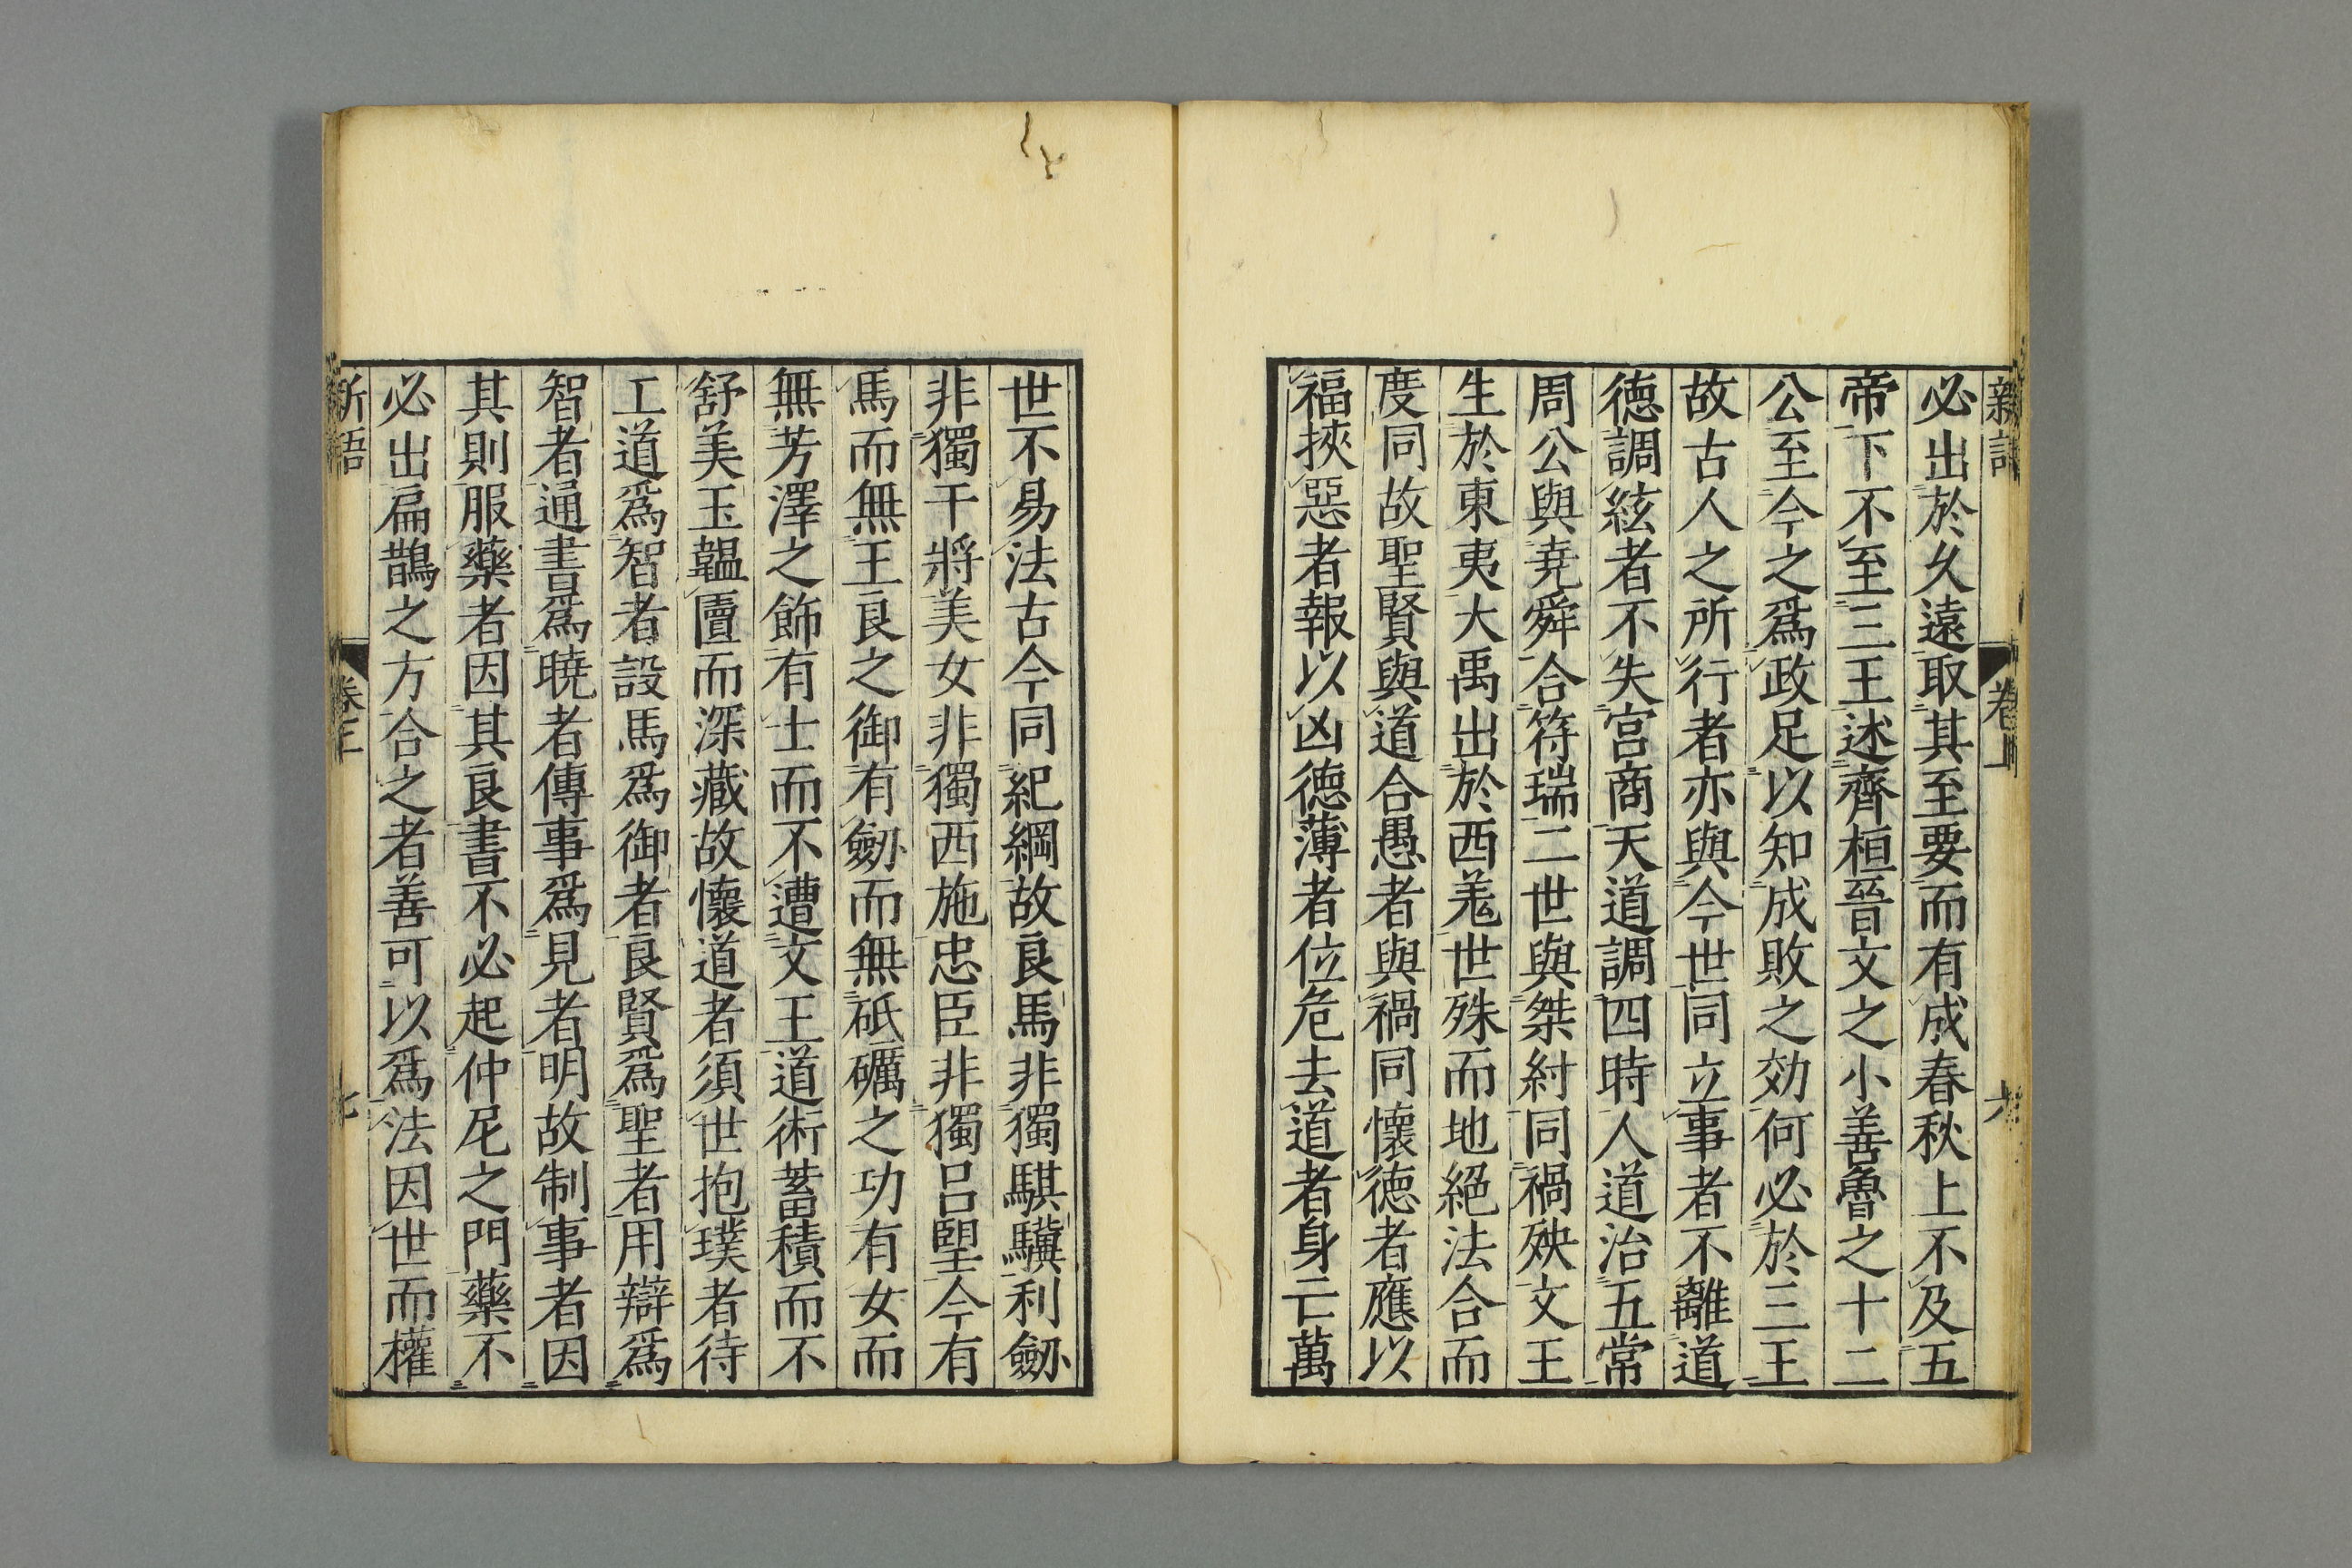 新語 卷上 六
必出於久遠取其至要而有成春秋上不及五
帝下不至三王述齊桓晉文之小善魯之十二
公至今之爲政足以知成敗之効何必於三王
故古人之所行者亦與今世同立事者不離道
徳調絃者不失宮商天道調四時人道治五常
周公與堯舜合符瑞二世與桀紂同禍殃文王
生於東夷大禹出於西羗世殊而地絕法合而
度同故聖賢與道合愚者與禍同懷徳者應以
福挾惡者報以凶德薄者位危去道者身亡萬
世不易法古今同紀綱故良馬非獨騏驥利劒
非獨干將美女非獨西施忠臣非獨呂望今有
馬而無王良之御有劒而無砥礪之功有女而
無芳澤之飾有士而不遭文王道術蓄積而不
舒美玉韞匵而深藏故懷道者須世抱璞者待
工道爲智者設馬爲御者良賢爲聖者用辯爲
智者通書爲曉者傳事爲見者明故制事者因
其則服藥者因其良書不必起仲尼之門藥不
必出扁鵲之方合之者善可以爲法因世而權
新語 卷上 七